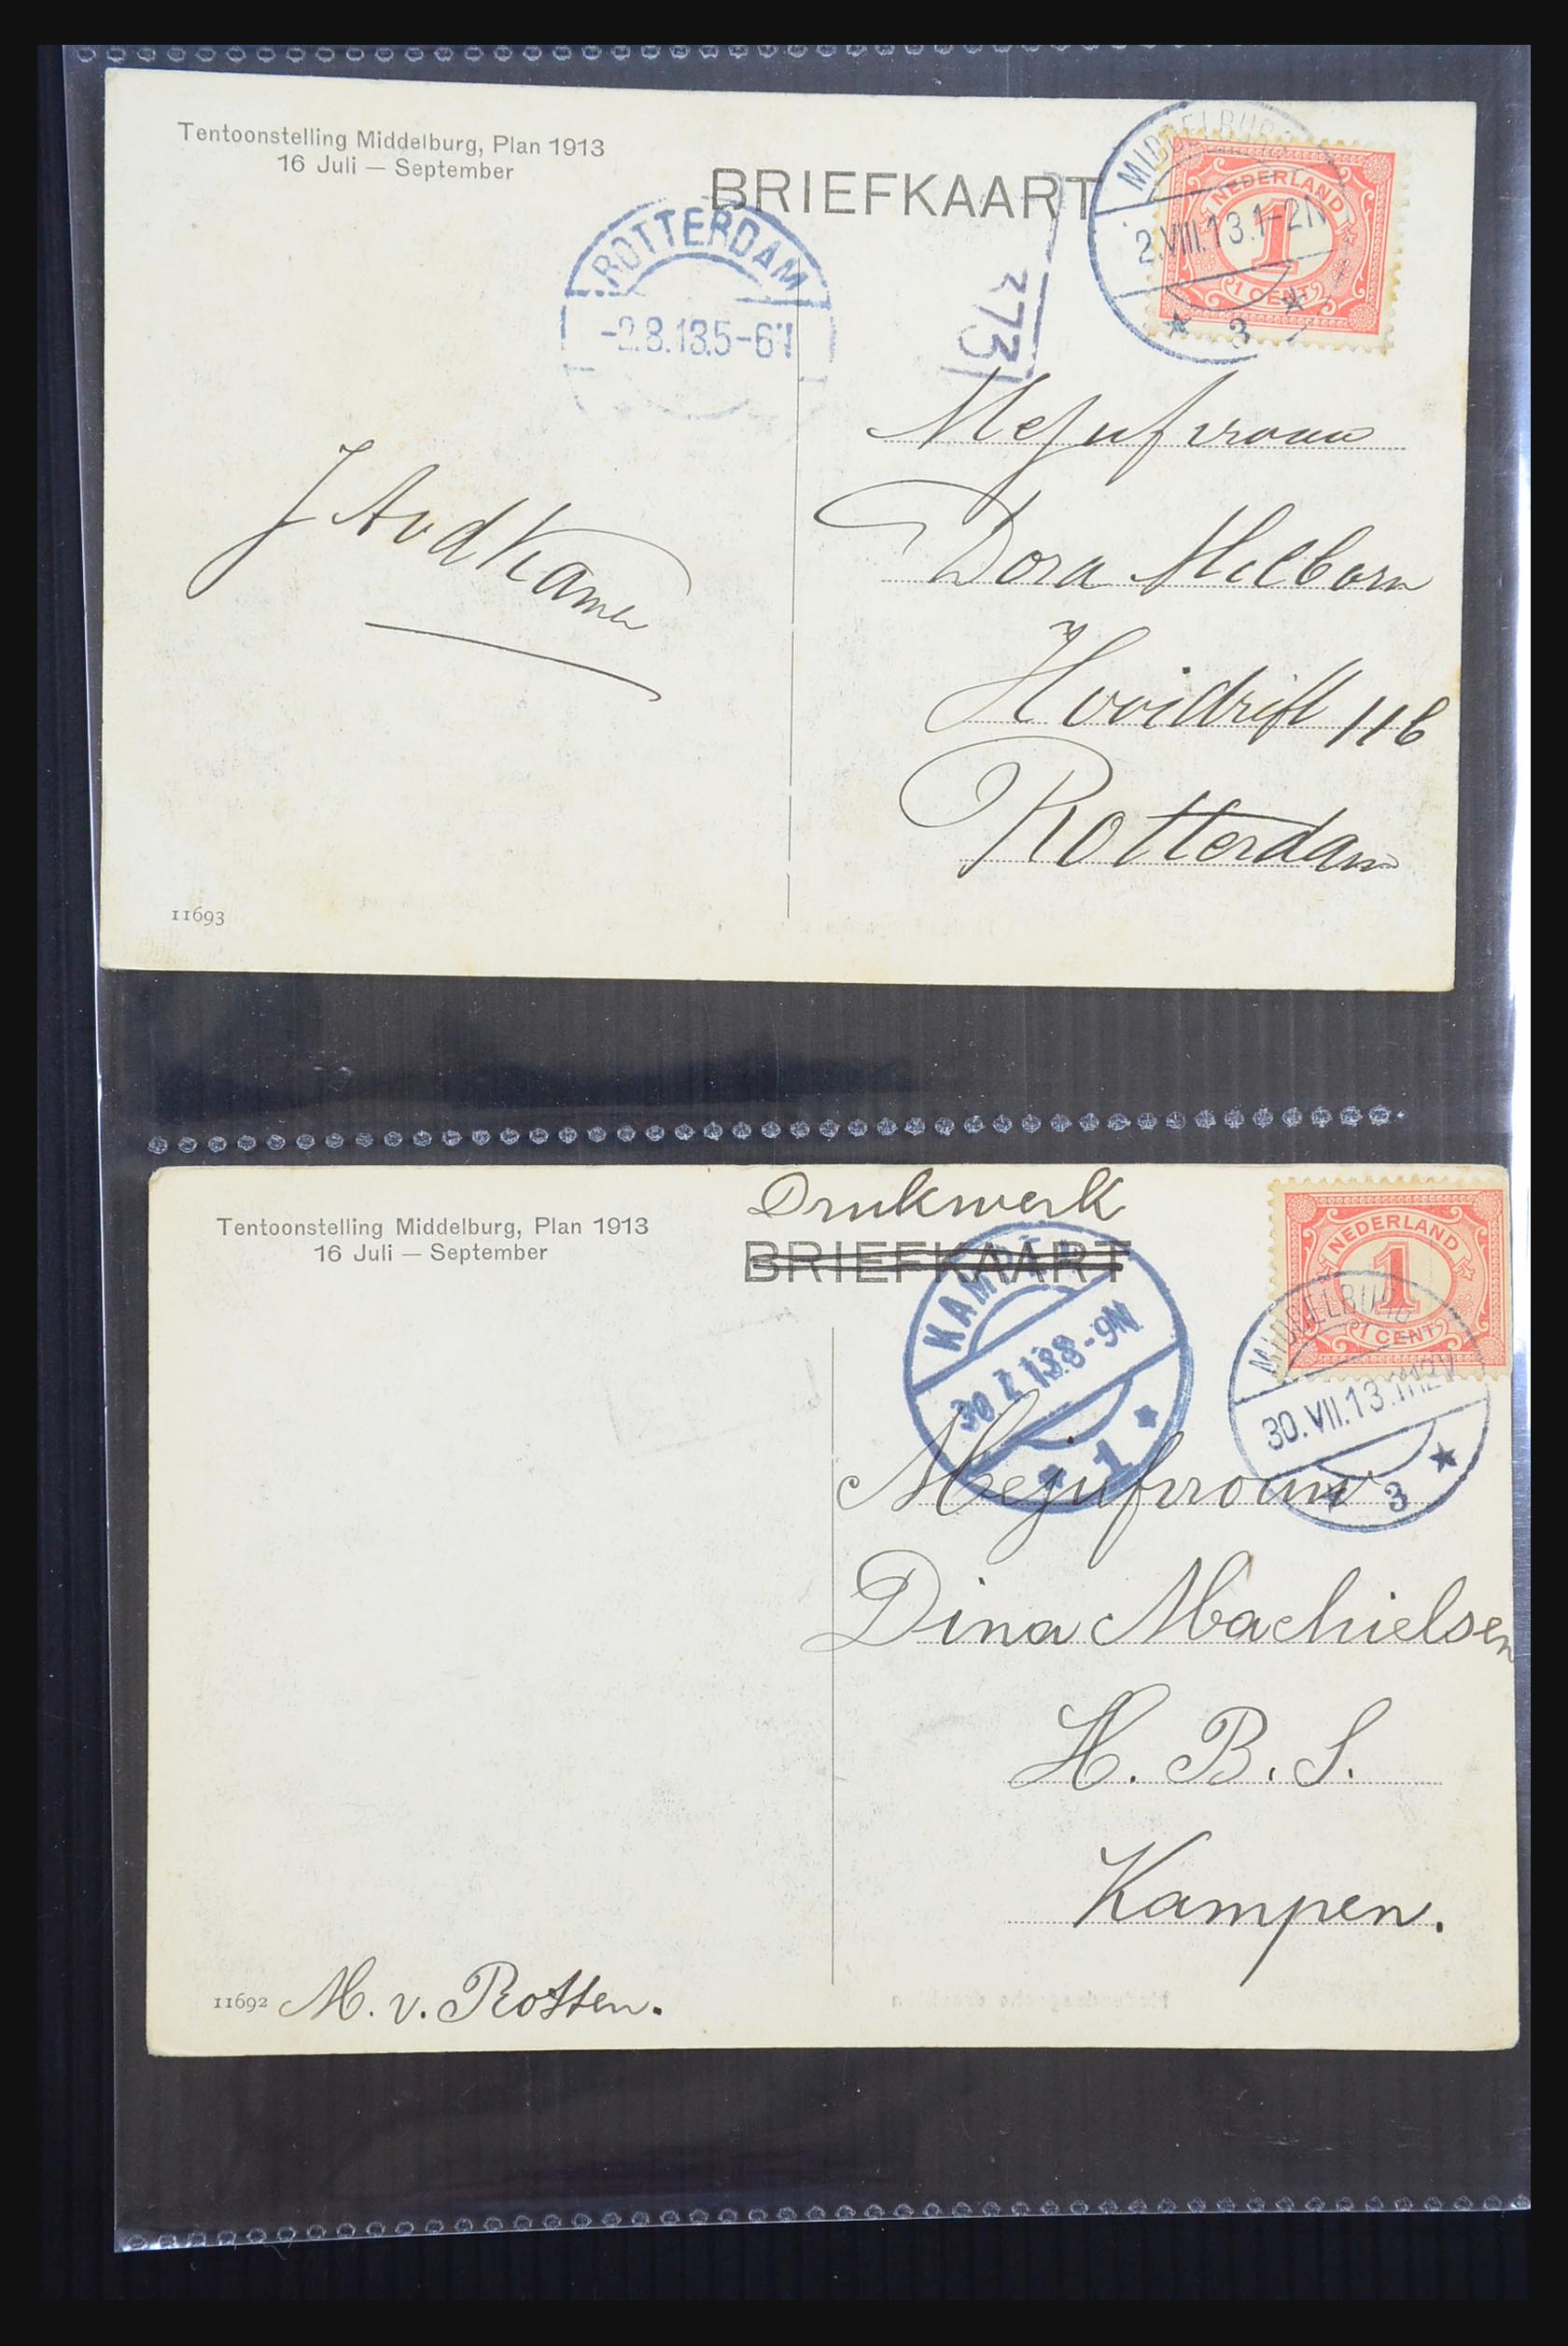 Tentoonstelling Middelburg, Plan 1913
16 Juli — September
BRIEFKAART
MIDDELBURG
2.VIII.13.1-2N
3
NEDERLAND
1
1 CENT
ROTTERDAM
-2.8.13.5-6N
Mejufvrouw
Dora Milborn
Hooidrift 116
Rotterdam
11693
Drukwerk
Tentoonstelling Middelburg, Plan 1913
16 Juli — September
BRIEFKAART
KAMPEN
30.7.13.8-9N
1
NEDERLAND
1
1 CENT
MIDDELBURG
30.VII.13.11-12V
3
Mejufvrouw
Dina Machielsen
H. B. S.
Kampen.
11692 M. v. Rotten.